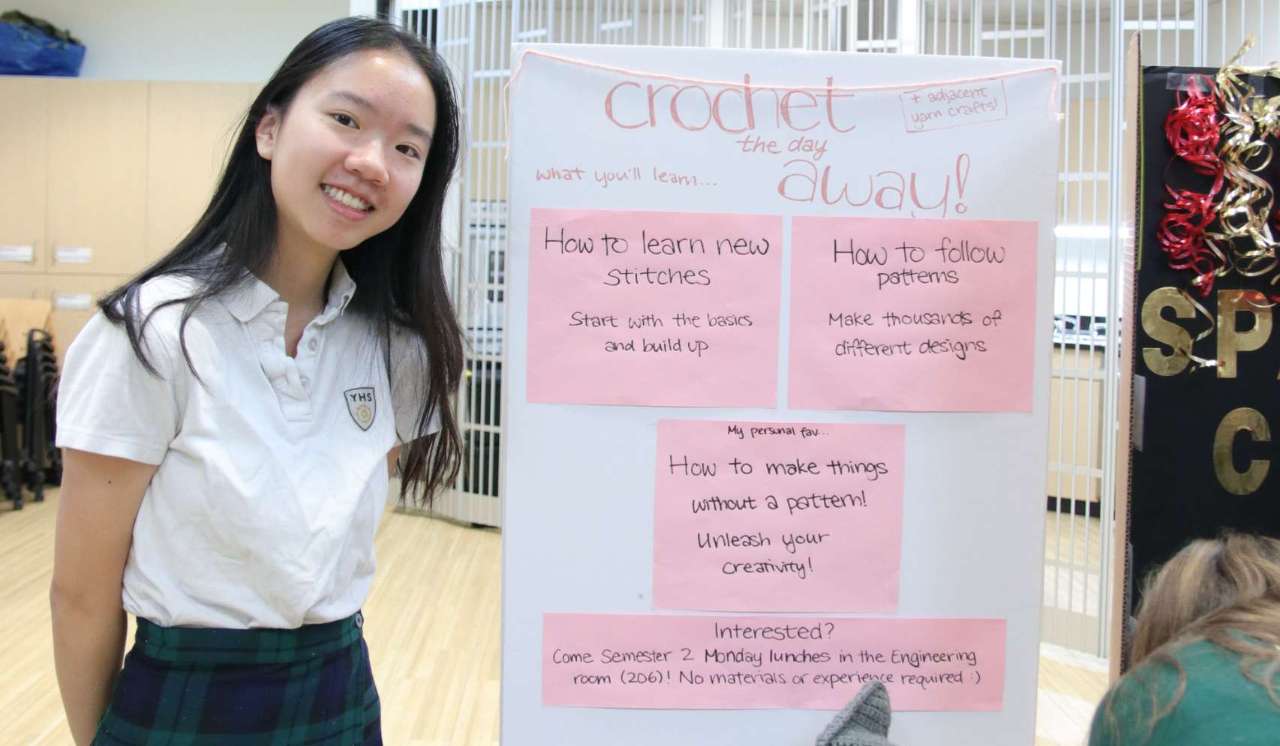 crochet
the day
away!
+ adjacent
yarn crafts!
what you'll learn...
How to learn new
stitches
Start with the basics
and build up
How to follow
patterns
Make thousands of
different designs
My personal fav...
How to make things
without a pattern!
Unleash your
creativity!
Interested?
Come Semester 2 Monday lunches in the Engineering
room (206)! No materials or experience required :)
YHS
SP
C